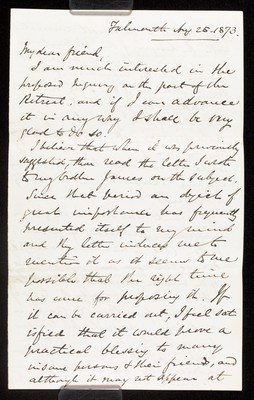 Falmouth Aug 25. 1873.
My dear friend,
I am much interested in the
proposed Inquiry, on the part of the
Retreat, and if I can advance
it in any way I shall be very
glad to do so.
I believe that when it was previously
suggested, thou read the letter I wrote
to my brother James on the subject.
Since that period an object of
great importance has frequently
presented itself to my mind
and thy letter induces me to
mention it as it seems to me
possible that the right time
has come for proposing it. If
it can be carried out, I feel sat
isfied that it would prove a
practical blessing to many
insane persons & their friends, and
although it may not appear at